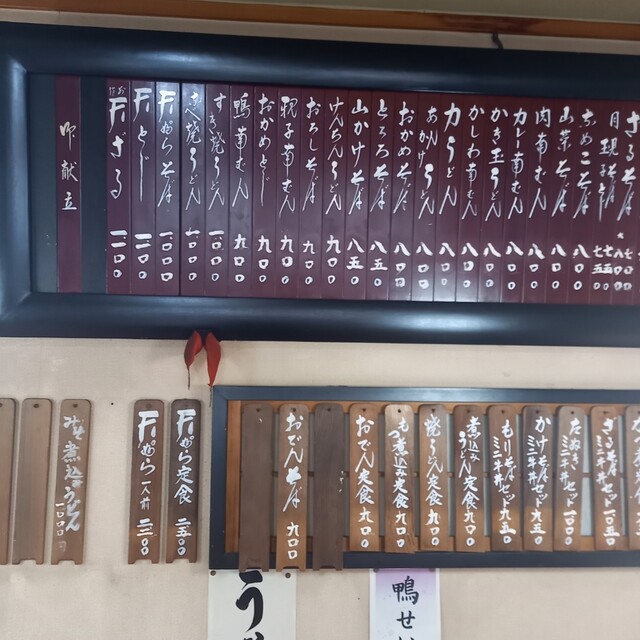 さるそば 七〇〇
月現そば
きのこそば 八〇〇
山菜そば 八〇〇
肉南ばん 八〇〇
カレー南ばん 八〇〇
かき玉うどん 八〇〇
かしわ南ばん 八〇〇
力うどん 八〇〇
あんかけうどん 八〇〇
おかめそば 八〇〇
とろろそば 八五〇
山かけそば 八五〇
けんちんうどん 九〇〇
おろしそば 九〇〇
親子南ばん 九〇〇
おかめとじ 九〇〇
鴨南ばん 九〇〇
すき焼うどん 一〇〇〇
鍋焼うどん 一一〇〇
天ぷらそば 一一〇〇
天とじ 一二〇〇
天ざる 一二〇〇
御献立
ざるそばミニ牛丼セット 一〇五〇
たぬきミニ牛丼セット 一〇〇〇
かけそばミニ牛丼セット 九五〇
もりそばミニ牛丼セット 九五〇
煮込みうどん定食 九〇〇
焼うどん定食 九〇〇
もつ煮込み定食 九〇〇
おでん定食 九〇〇
おでんそば 九〇〇
天ぷら定食 二五〇〇
天ぷら 一人前 二三〇〇
みそ煮込うどん 一〇〇〇円
鴨せい
う